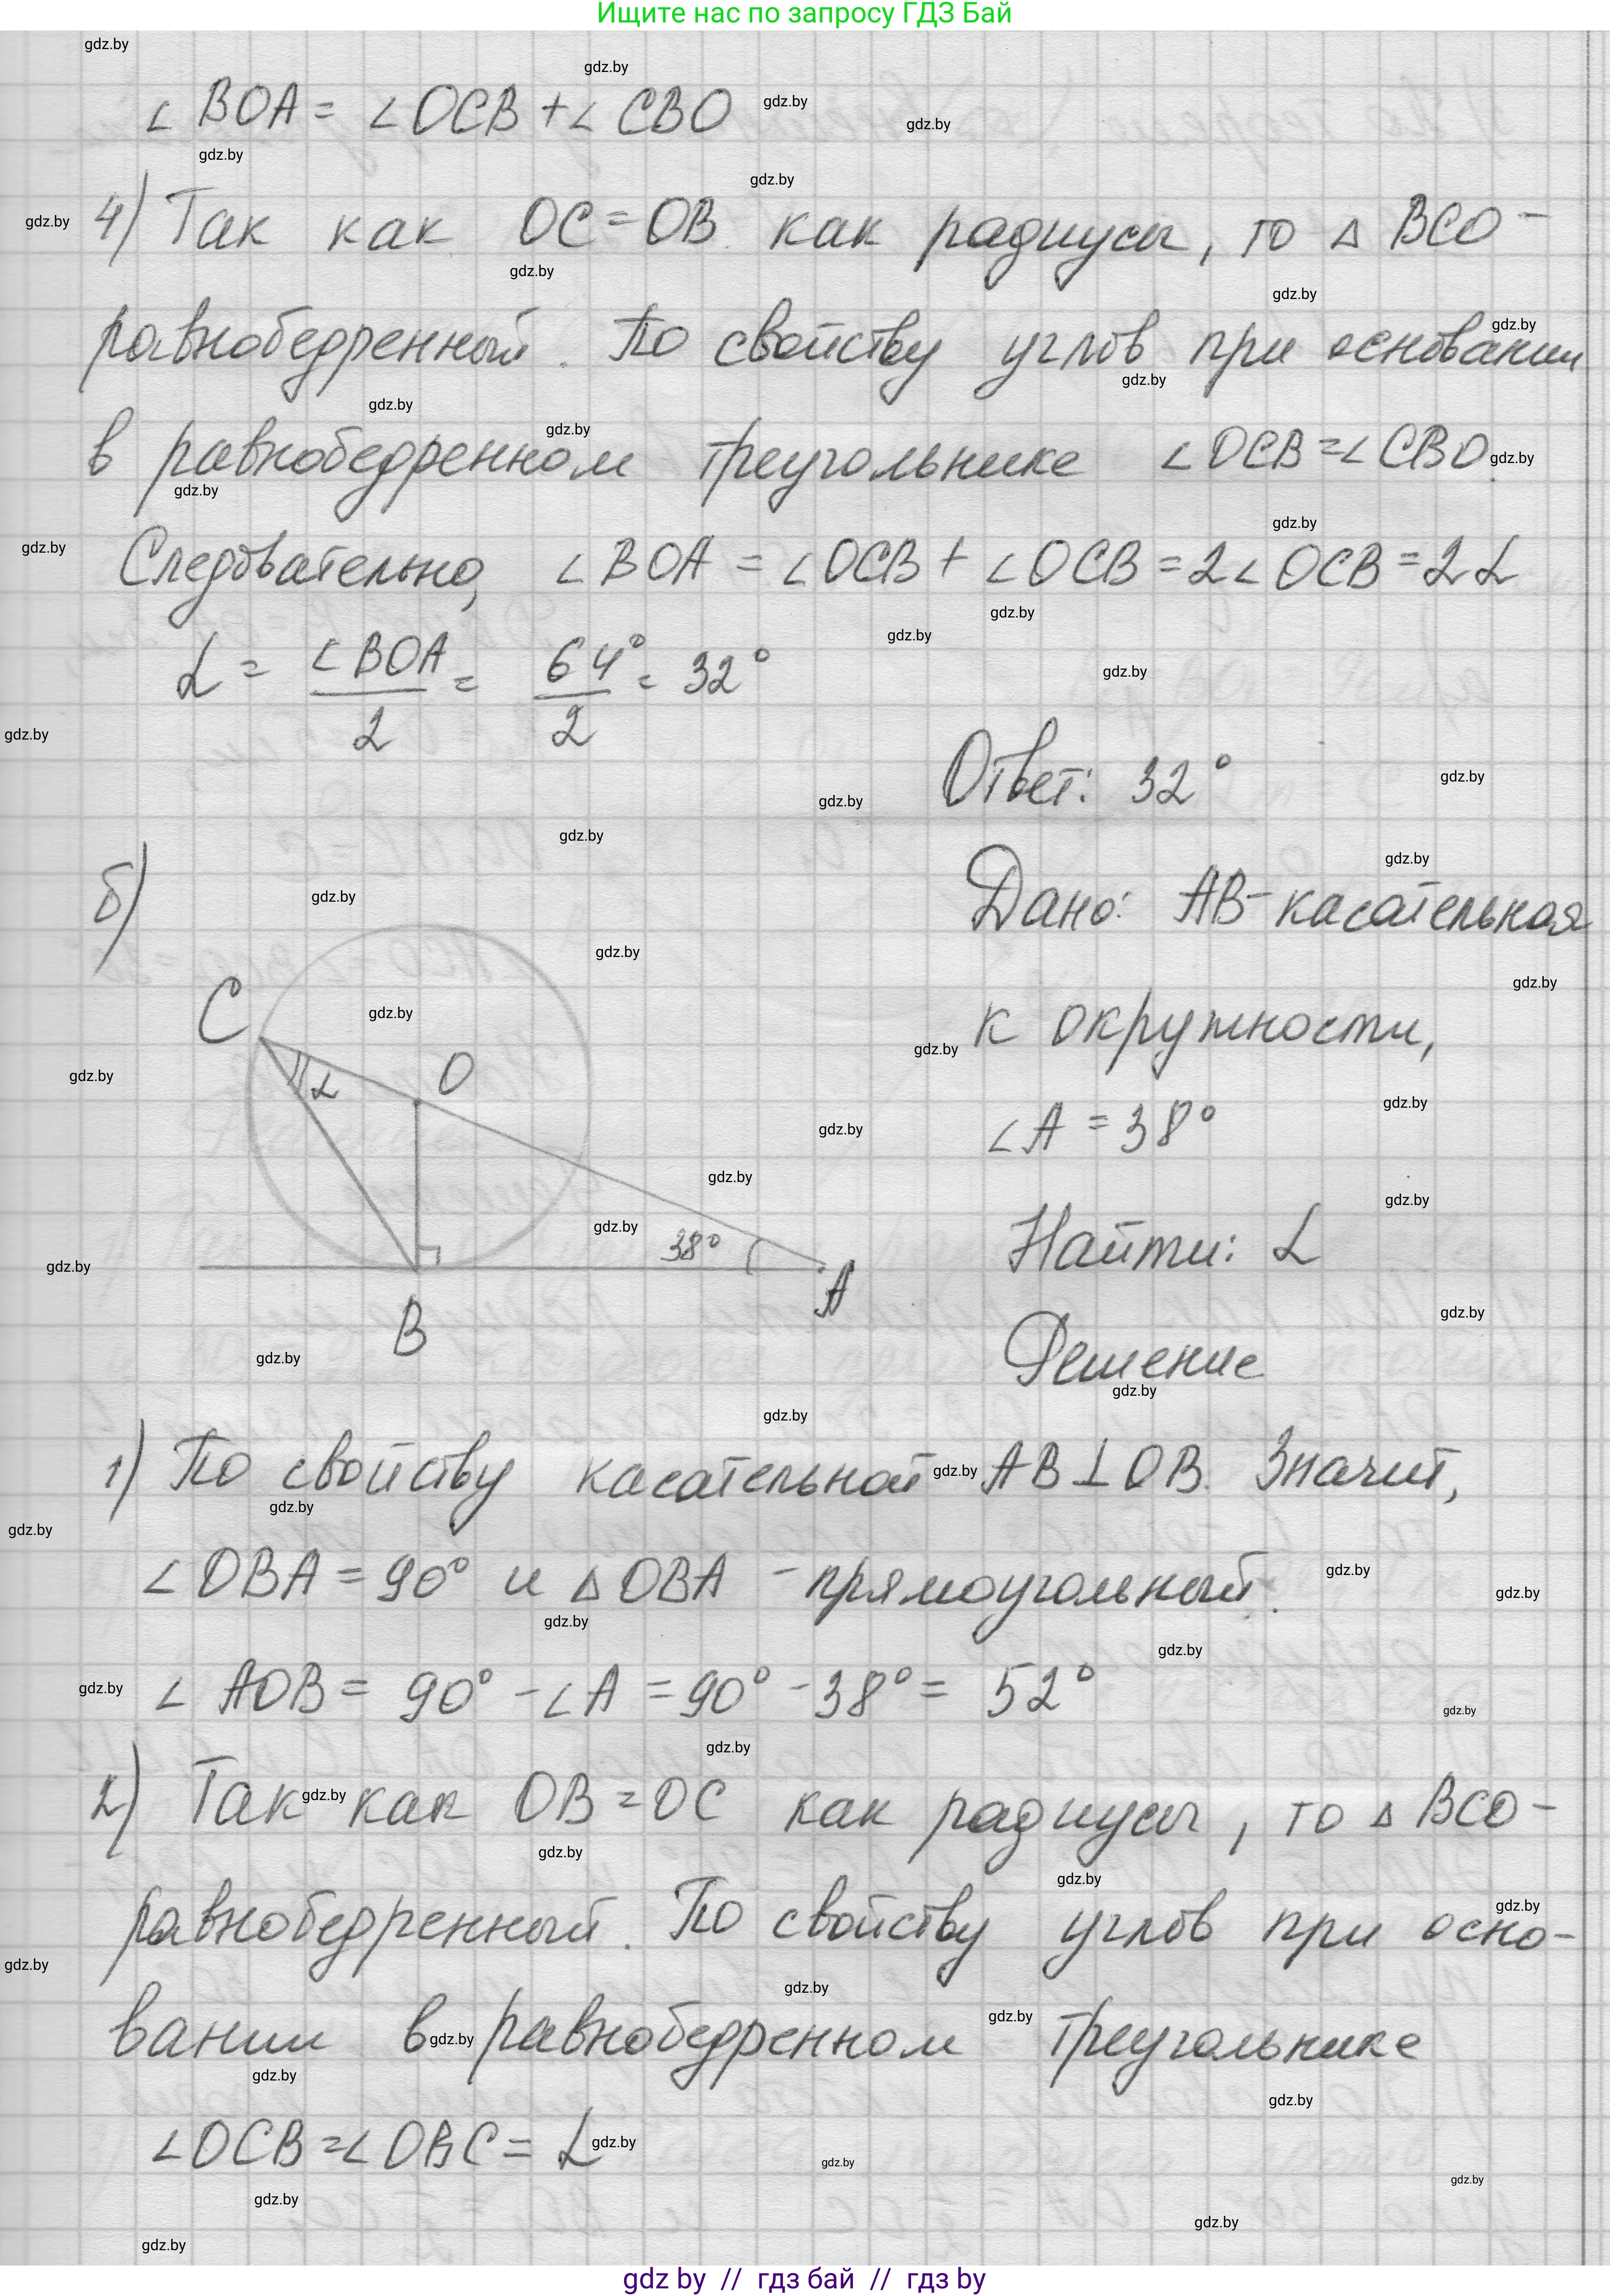 Ищите нас по запросу ГДЗ Бай
∠BOA = ∠OCB + ∠CBO
4) Так как OC = OB как радиусы, то △ BCO -
равнобедренный. По свойству углов при основании
в равнобедренном треугольнике ∠OCB = ∠CBO.
Следовательно, ∠BOA = ∠OCB + ∠OCB = 2∠OCB = 2α
α = ∠BOA/2 = 64°/2 = 32°
Ответ: 32°
б)
Дано: AB - касательная
к окружности,
∠A = 38°
Найти: α
Решение
C
α
O
38°
A
B
1) По свойству касательной AB ⊥ OB. Значит,
∠OBA = 90° и △OBA - прямоугольный.
∠AOB = 90° - ∠A = 90° - 38° = 52°
2) Так как OB = OC как радиусы, то △ BCO -
равнобедренный. По свойству углов при осно-
вании в равнобедренном треугольнике
∠OCB = ∠OBC = α
gdz by // гдз бай // гдз by